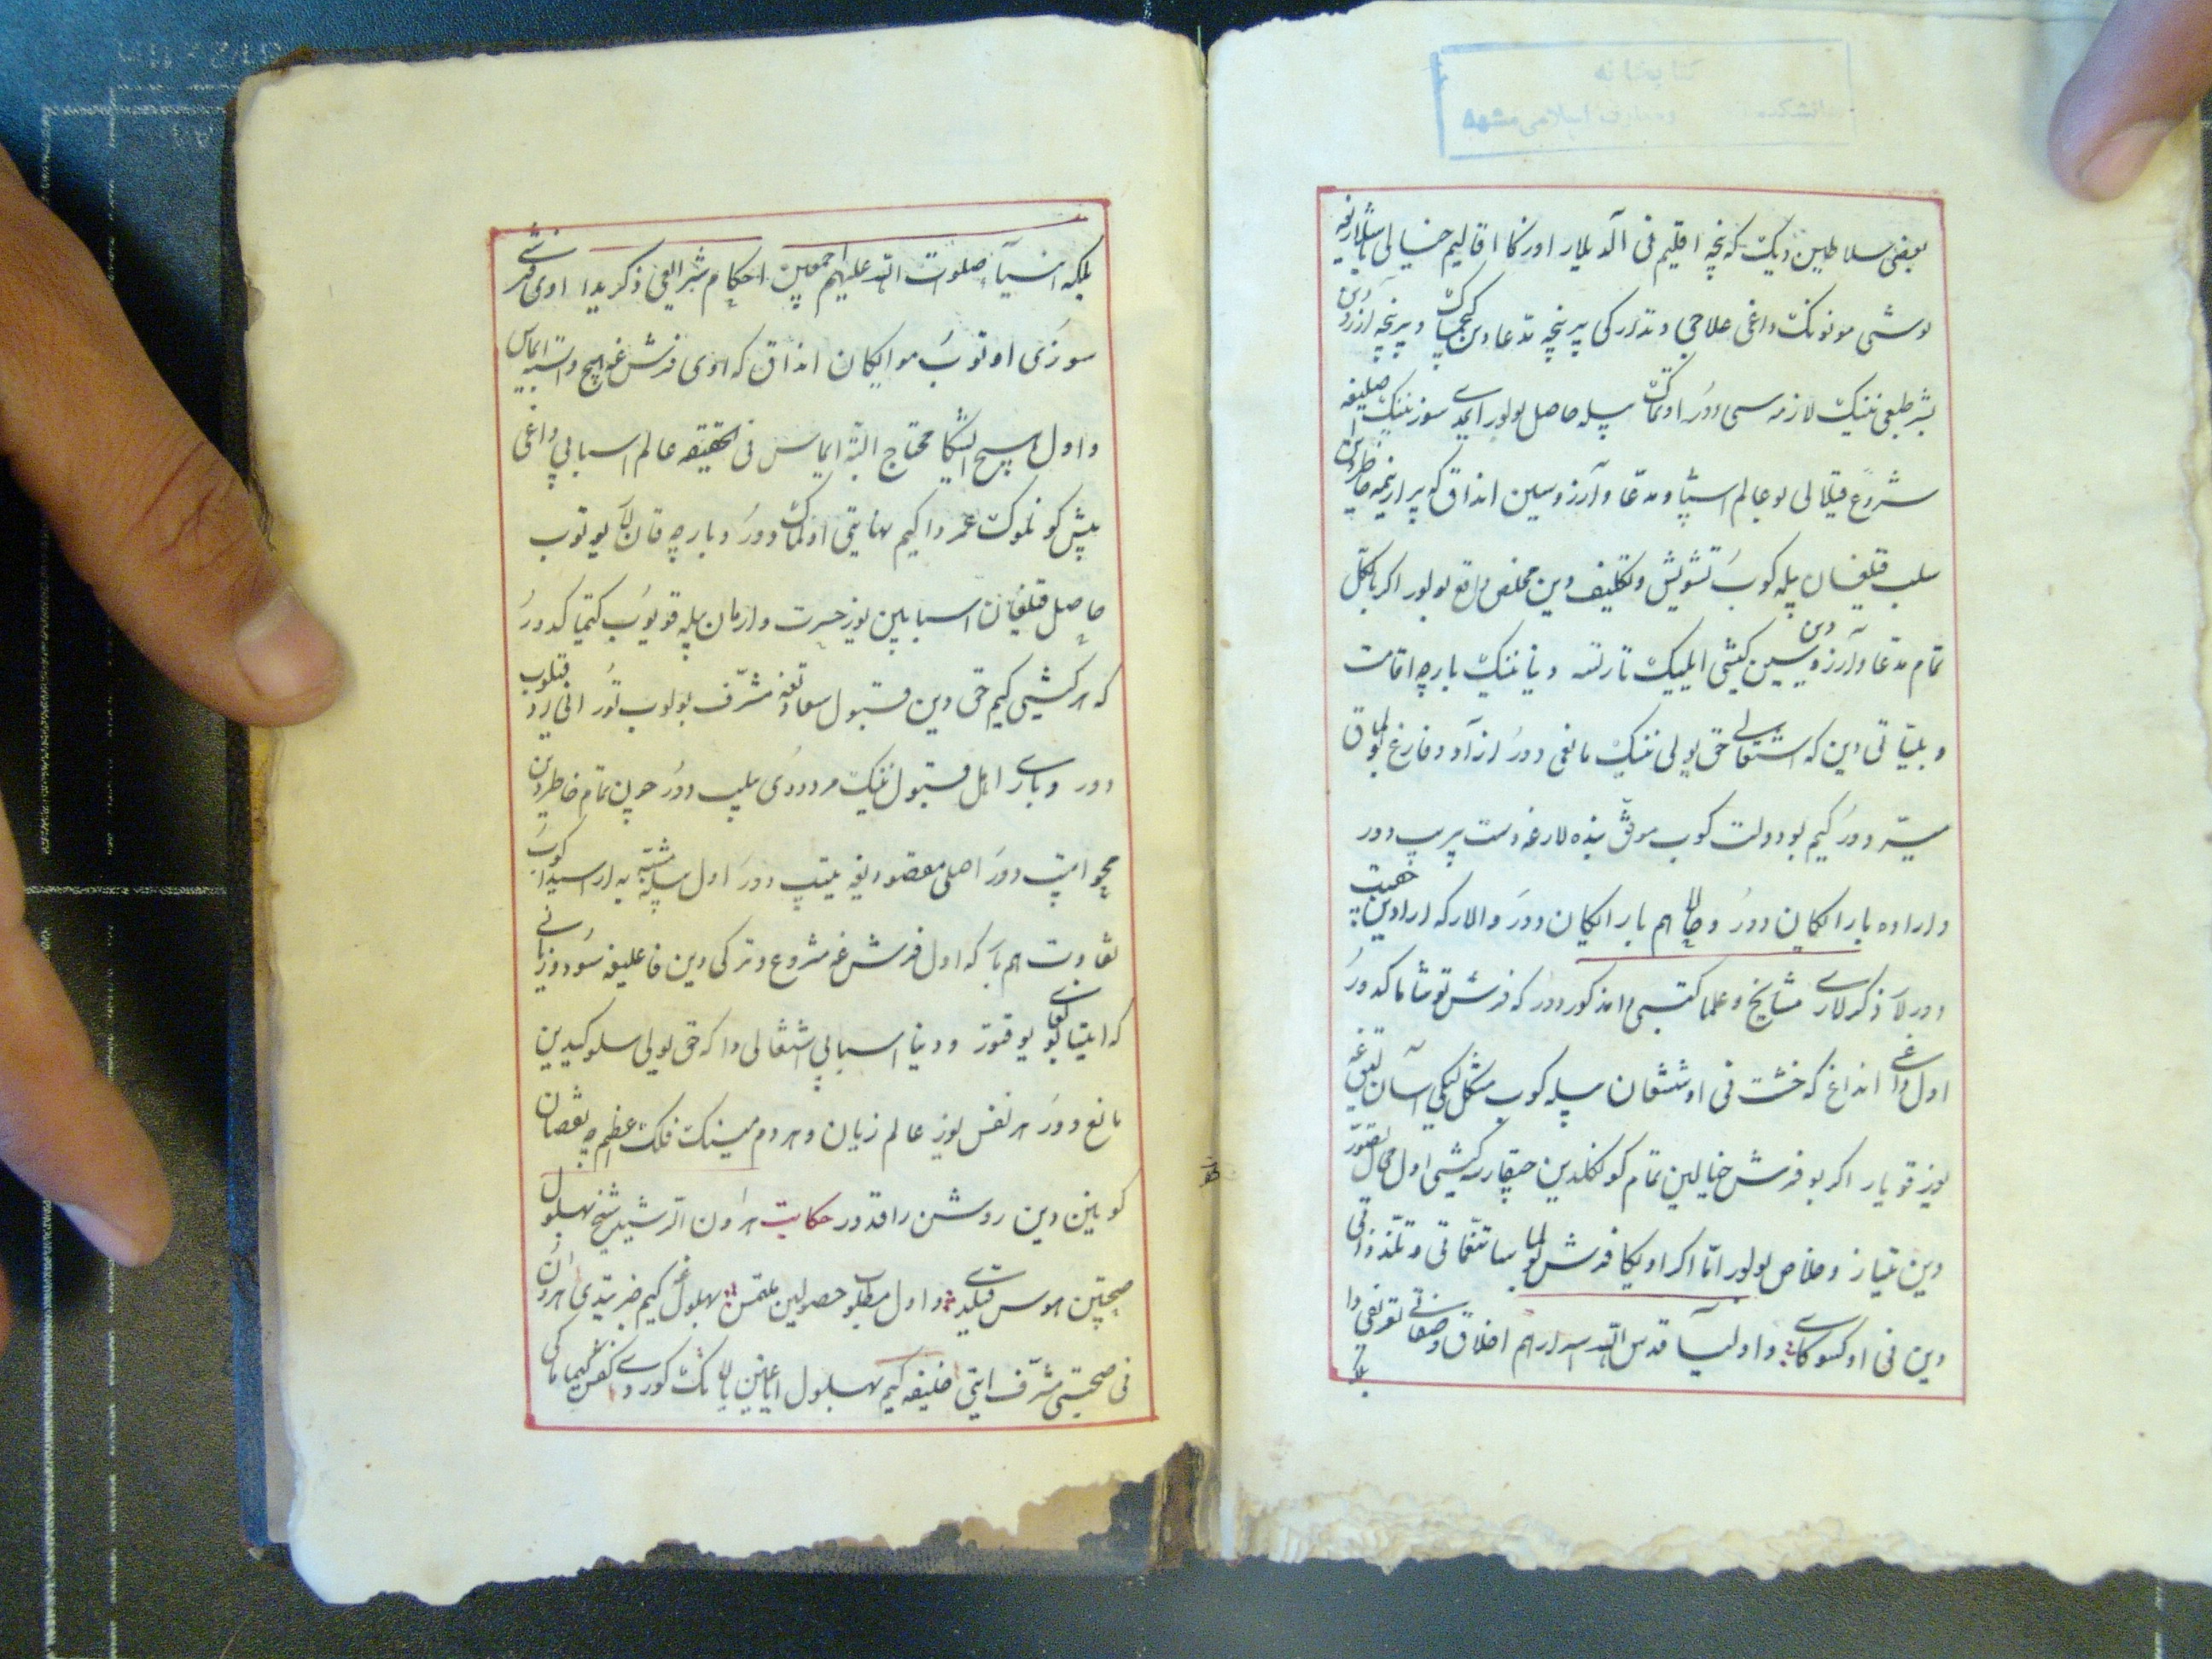 کتابخانه
دانشکده معارف اسلامی مشهد
بعضی سلاطین دیک که نچه اقلیم فی آلدیلار اورنکا اقالیم خیالی باشلاریغه
توشتی مونونک داغی علاجی و تدارکی بیرنچه مدعا دین کیچماک و بیرنچه آرزو دین
بشر طبعی ننیک لازمه سی دور اوتماک بیله حاصل بولور ایمدی سوزننیک اصلیغه
شروع قیلالی بو عالم اسبابی و مدعا و آرزوسین انداق کو بیر ارنیمه خاطردین
سلب قیلغان بیله کوب تشویش و تکلیف دین مخلص واقع بولور اکر بالکل
تمام مدعا و آرزوسیدین کیشی ایلیک تارتسه و دنیا ننیک بارچه اقامت
و بلیاتی دین که اشتغالی حق یولی ننیک مانعی دور آزاد و فارغ بولماق
میسر دور کیم بو دولت کوب موفق بنده لارغه دست بیریب دور
و اراده بار ایکان دور و حالا هم بار ایکان دور والار که ارادین چقیب
دورلار ذکرلاری مشایخ و علما کتبی دا مذکور دور که فرش توشاماکدور
اول داغی انداغ که خشت نی اوششغان بیله کوب مشکل لیکی آسان لیغه
یوز قویار اکر بو فرش خیالین تمام کونکلدین چیقارسه کیشی اول محال تصور
دین بتیاز و خلاص بولور اما اکر اویکا فرش بولماسا تنعماتی و تلذذاتی
دین نی اوکسوکای و اولیا قدس الله اسرارهم اخلاق و صفاتی تعریفی دا
بلکه
بلکه انبیا صلوات الله علیهم اجمعین احکام شرایعی ذکریدا اوی فرشی
سوزی اوتوب مو ایکان انداق که اوی فرش غه هیچ وابسته ایماس
و اول هیچ انکا محتاج البته ایماس فی الحقیقه عالم اسبابی داغی
بیش کونلوک عمر دا کیم نهایتی اولماک دور و بارچه قان یوتوب
حاصل قیلغان اسبابین یوز حسرت و ارمان بیله قویوب کتماکدور
که هر کیشی کیم حق دین قبول سعادتیغه مشرف بولوب تور انی رد قیلوب
دور و باری اهل قبول ننیک مردودی بیلیب دور چون تمام خاطردین
محو ایتیب دور اصلی مقصودیغه ییتیب دور اول بیله مشتبه یه اراسیدا کوب
تفاوت هم بار که اول فرش غه شروع و ترکی دین فاعلیغه سود و زیانی
که ایتیلکای بو یوقتور و دنیا اسبابی اشتغالی دا که حق یولی سلوکیدین
مانع دور هر نفس یوز عالم زیان و هر دم مینک فلک اعظم چه نقصان
کونین دین روشن راقدور حکایت هارون الرشید شیخ بهلول
صحبتین هوس قیلدی و اول مطلوب حصولین ملتمس بهلول غه کیم خبر یتدی هارون
نی صحبتی مشرف ایتی خلیفه کیم بهلول ایاغین یالانک کوردی کفش کیماکی